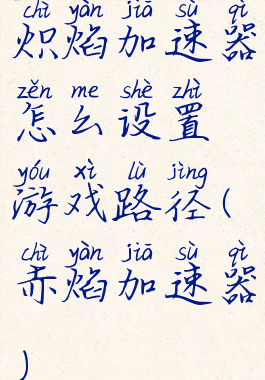 chì yàn jiā sù qì
炽焰加速器
zěn me shè zhì
怎么设置
yóu xì lù jìng
游戏路径(
chì yàn jiā sù qì
赤焰加速器
)